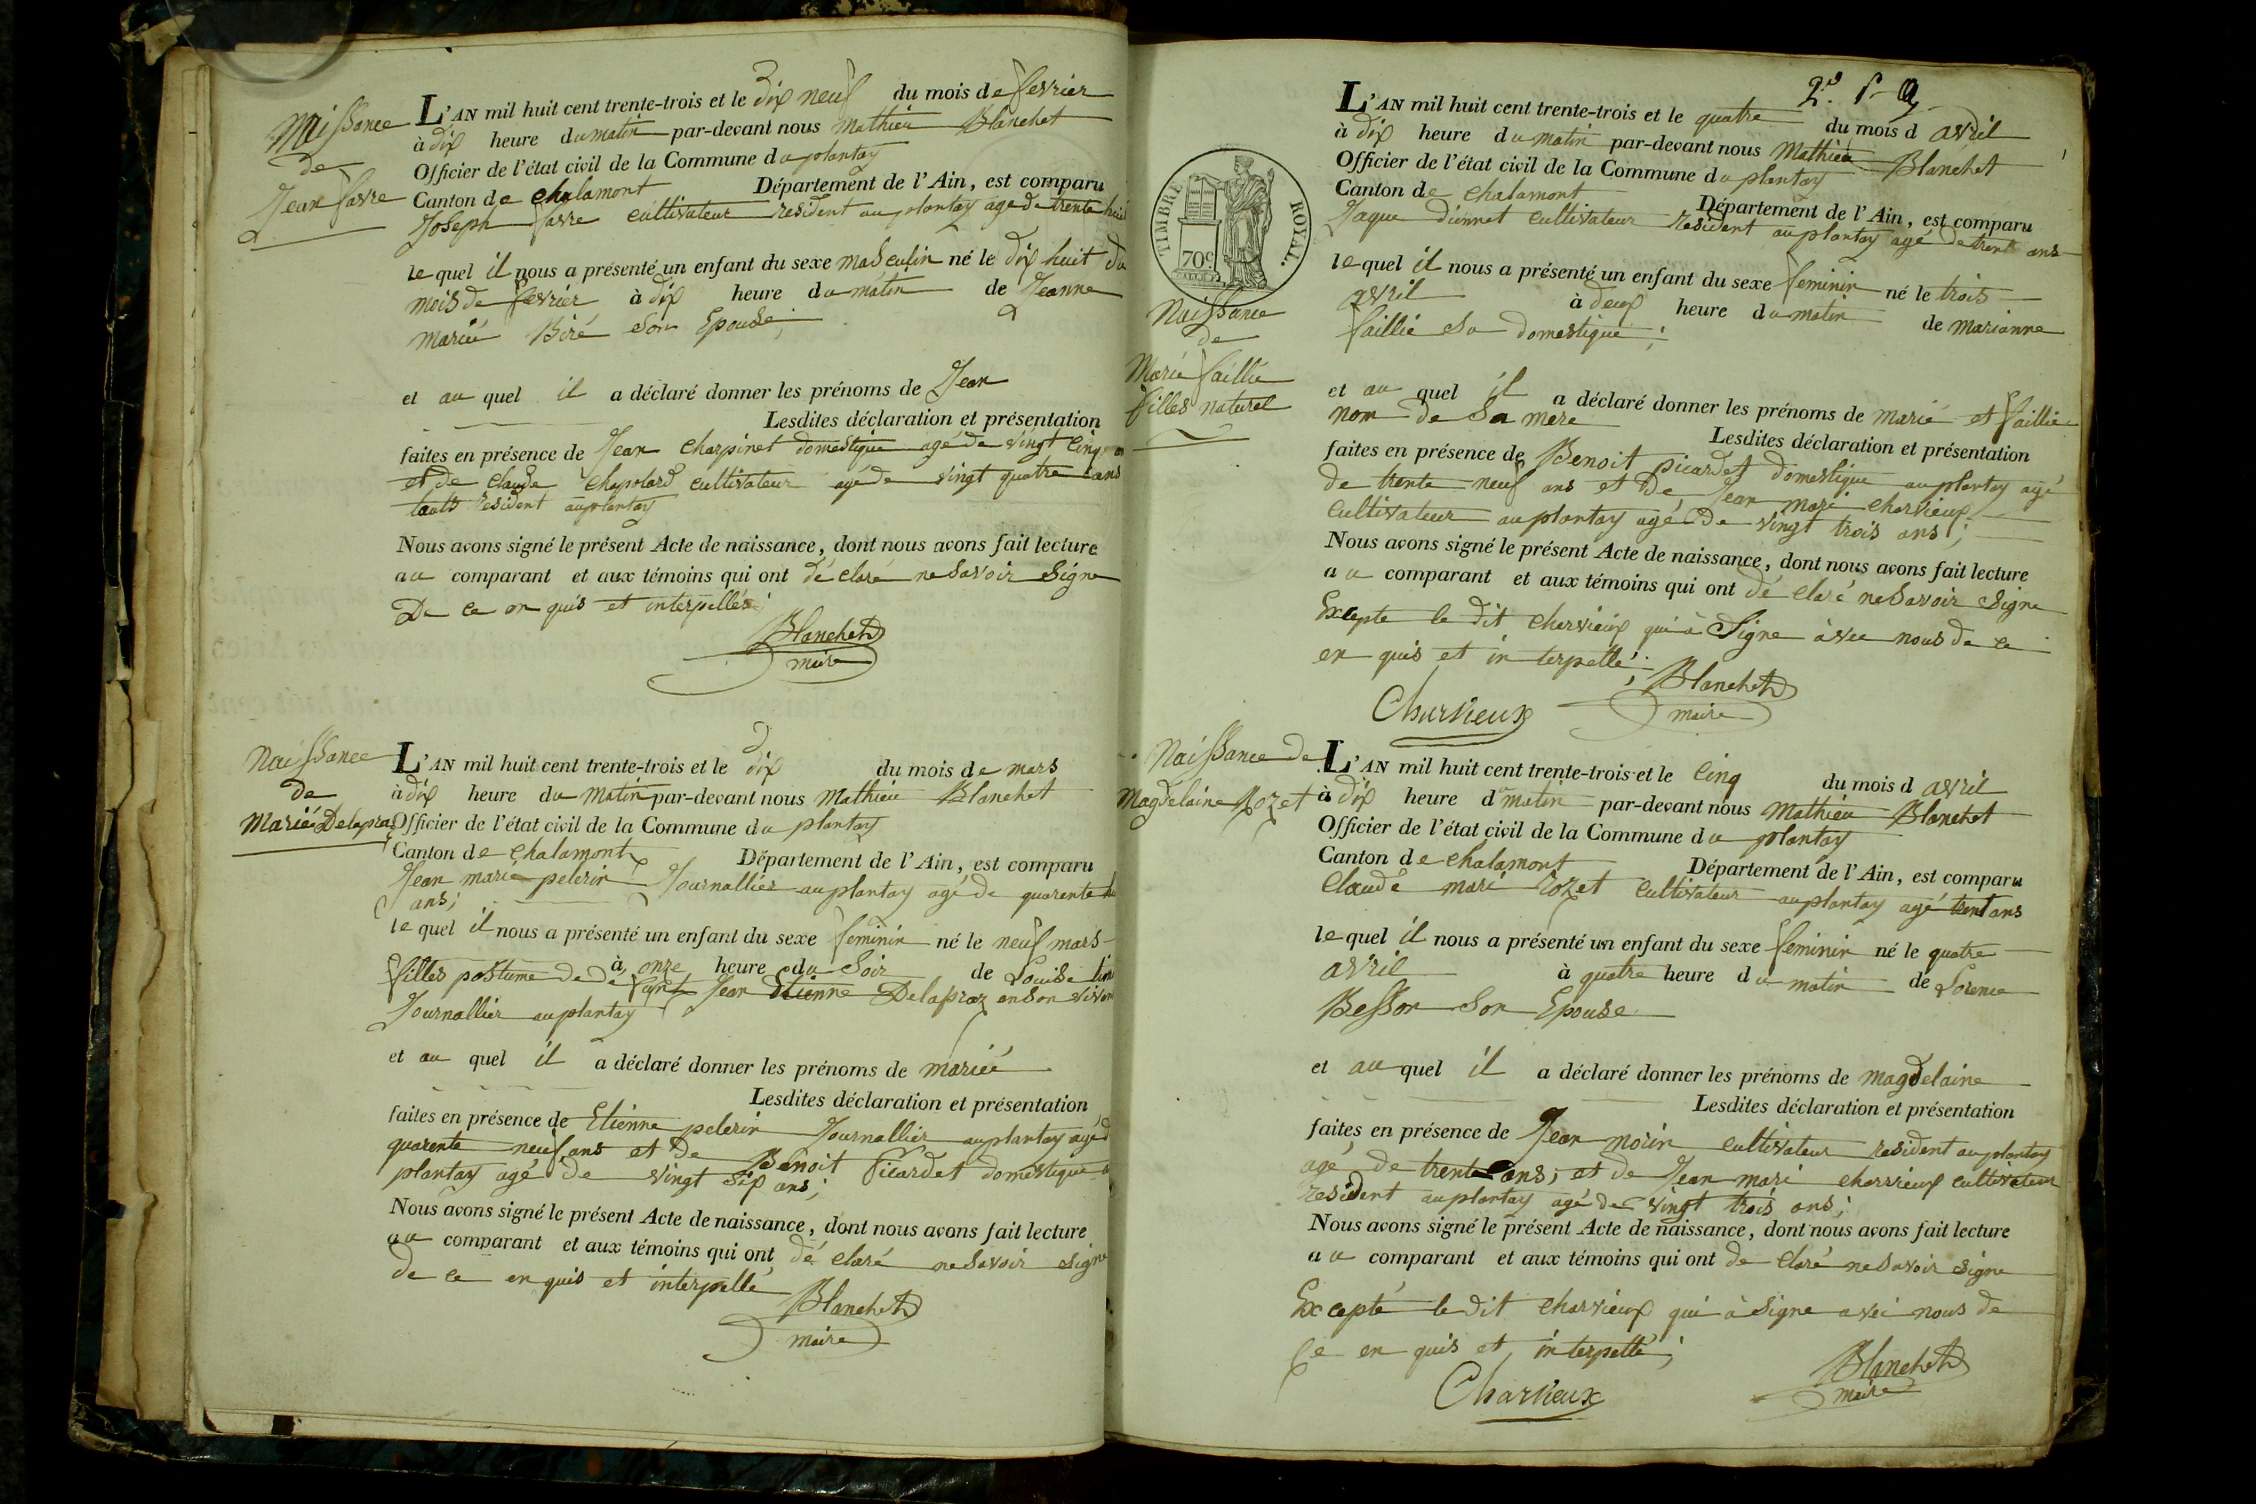 Naissance
de
Jean favre
L'AN mil huit cent trente-trois et le dix neuf du mois de fevrier
à dix heure du matin par-devant nous mathieu Blanchet
Officier de l'état civil de la Commune du plantay
Canton de chalamont Département de l'Ain, est comparu
Joseph favre cultivateur resident au plantay age de trente huit
le quel il nous a présenté un enfant du sexe masculin né le dix huit du
mois de fevrier à dix heure du matin de Jeanne
marié Biré son Epouse;
et au quel il a déclaré donner les prénoms de Jean
Lesdites déclaration et présentation
faites en présence de Jean charpinet domestique agé de vingt cinq
et de claude chapolard cultivateur agé de vingt quatre ans
touts resident au plantay
Nous avons signé le présent Acte de naissance, dont nous avons fait lecture
au comparant et aux témoins qui ont dé claré ne savoir signe
De ce en quis et interpellés;
Blanchet
maire
Naissance
de
Marié Delapraz
L'AN mil huit cent trente-trois et le dix du mois de mars
à dix heure du matin par-devant nous mathieu Blanchet
Officier de l'état civil de la Commune du plantay
Canton de chalamont Département de l'Ain, est comparu
Jean marie pelerin Journallier au plantay agé de quarente
ans;
le quel il nous a présenté un enfant du sexe feminin né le neuf mars
à onze heure du soir de Louise
filles postume de dé funt Jean Etienne Delapraz en son vivant
Journallier au plantay
et au quel il a déclaré donner les prénoms de marié
Lesdites déclaration et présentation
faites en présence de Etienne pelerin Journallier au plantay agé d
quarente neuf ans et de Benoit Picardet domestique a
plantay agé de vingt six ans;
Nous avons signé le présent Acte de naissance, dont nous avons fait lecture
au comparant et aux témoins qui ont dé claré ne savoir signe
de ce en quis et interpellé
Blanchet
maire
2e. f-
TIMBRE ROYAL.
70c
Naissance
de
Marié faillie
filles naturel
L'AN mil huit cent trente-trois et le quatre du mois d avril
à dix heure du matin par-devant nous Mathieu Blanchet
Officier de l'état civil de la Commune du plantay
Canton de chalamont Département de l'Ain, est comparu
Jaque dunnet cultivateur resident au plantay agé de trent ans
le quel il nous a présenté un enfant du sexe feminin né le trois
avril à deux heure du matin de marianne
faillie sa domestique;
et au quel il a déclaré donner les prénoms de marié et faillie
nom de sa mere
Lesdites déclaration et présentation
faites en présence de Benoit picardet domestique au plantay agé
de trente neuf ans et de Jean mari charvieux
cultivateur au plantay agé de vingt trois ans;
Nous avons signé le présent Acte de naissance, dont nous avons fait lecture
au comparant et aux témoins qui ont dé claré ne savoir signe
Excepté le dit chervieux qui à Signe àvec nous de ce
en quis et in terpellé;
Blanchet
maire
Charvieux
Naissance de
Magdelaine Rozet
L'AN mil huit cent trente-trois et le cinq du mois d avril
à dix heure du matin par-devant nous Mathieu Blanchet
Officier de l'état civil de la Commune du plantay
Canton de chalamont Département de l'Ain, est comparu
Claude mari rozet cultivateur au plantay agé trent ans
le quel il nous a présenté un enfant du sexe feminin né le quatre
avril à quatre heure du matin de Lorence
Besson son Epouse
et au quel il a déclaré donner les prénoms de magdelaine
Lesdites déclaration et présentation
faites en présence de Jean morin cultivateur resident au plantay
agé de trente ans; et de Jean mari charvieux cultivateur
resident au plantay agé de vingt trois ans;
Nous avons signé le présent Acte de naissance, dont nous avons fait lecture
au comparant et aux témoins qui ont de claré ne savoir signe
Excepté le dit charvieux qui à signe avec nous de
Ce en quis et interpellé;
Charvieux
Blanchet
maire